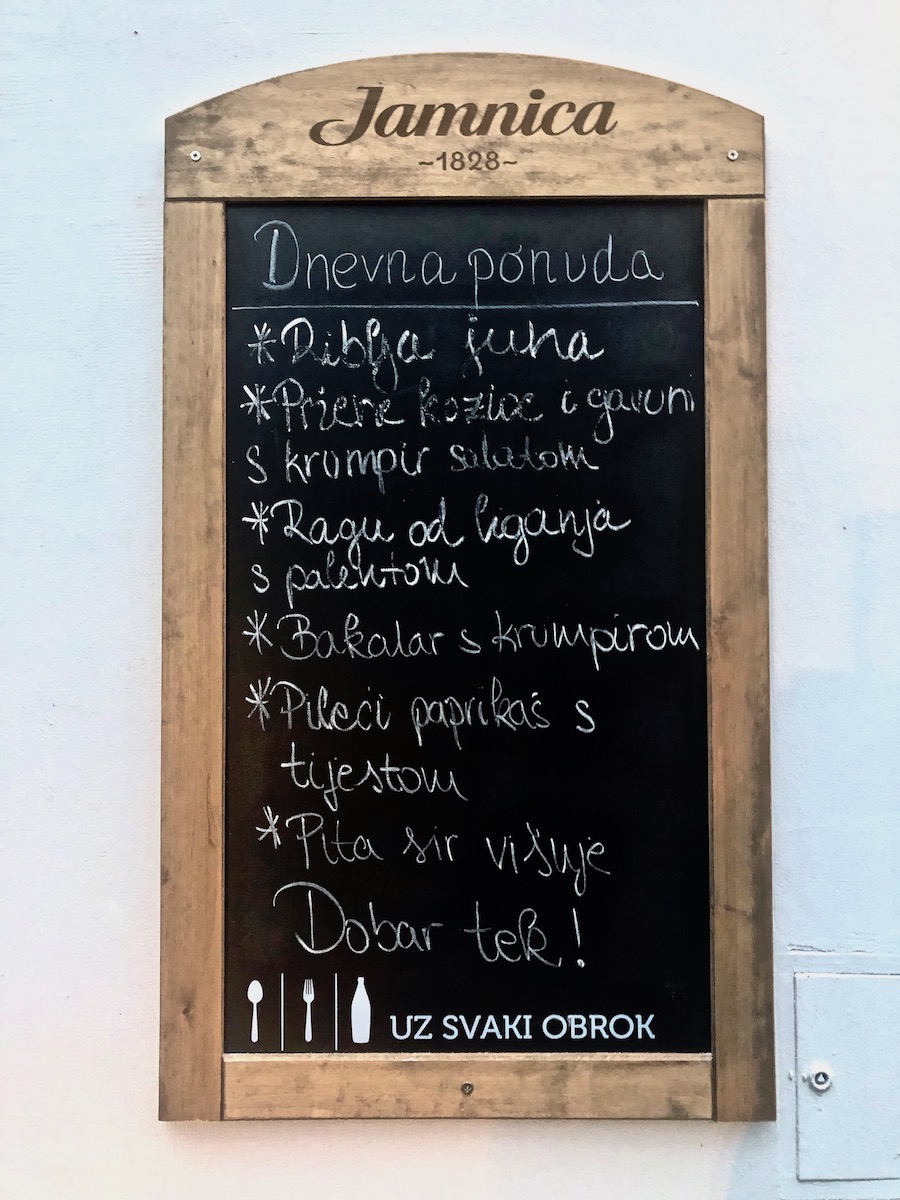 Jamnica
~1828~
Dnevna ponuda
*Riblja juha
*Pržene kozice i gavuni
s krumpir salatom
*Ragu od liganja
s palentom
*Bakalar s krumpirom
*Pileći paprikaš s
tijestom
*Pita sir višnje
Dobar tek!
UZ SVAKI OBROK